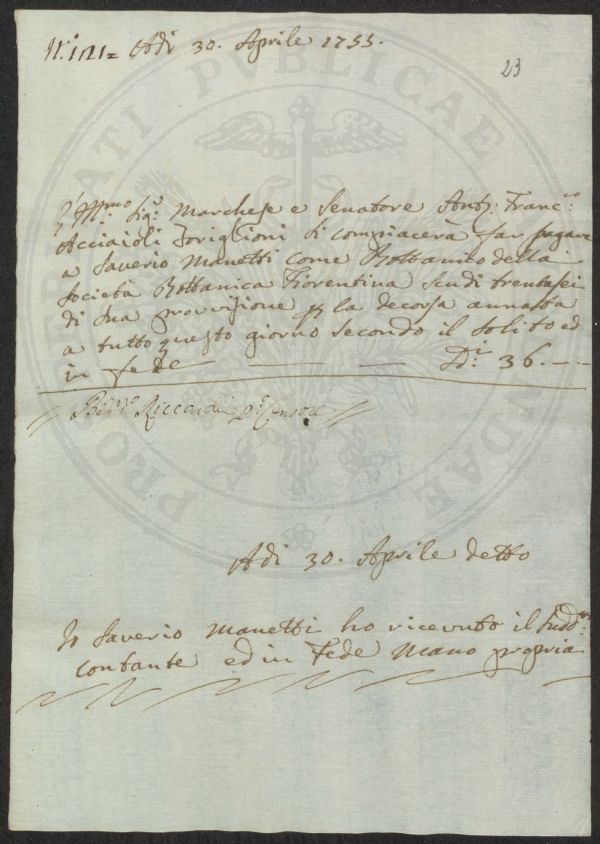 Adi 30. Aprile 1755.
23
Ill.mo Sig.r Marchese e Senatore Ant.o Franc.o
Acciaioli Toriglioni si compiacerà far pagare
a Saverio Manetti come Bottanico della
Società Bottanica Fiorentina scudi trentasei
di sua provisione p la decorsa annata
a tutto questo giorno secondo il solito ed
in fede — — — D.i 36. — —
Riccardi p.o Censore
Adi 30. Aprile detto
Io Saverio Manetti ho ricevuto il sudd.o
contante ed in fede mano propria
PROSPERITATI PVBLICAE AVGENDAE